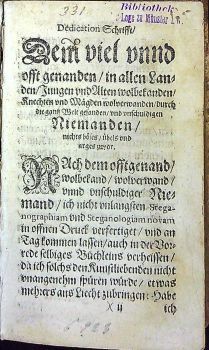 331.
Bibliothek
Loge zu Münster i. W.
Dedication Schrifft/
Dem viel vnnd
offt genanden/ in allen Lan-
den/ Jungen vnd Alten wolbekanden/
Knechten vnd Mägden wolverwanden/ durch
die gantz Welt gesanden/ vnd vnschuldigen
Niemanden/
nichts böses/ übels vnd
arges zuvor.
NAch dem offtgenand/
wolbekand/ wolverwand/
vnnd vnschuldiger Nie-
mand/ ich nicht vnlangsten Stega-
nographiam vnd Steganologiam novam
in offnen Druck verfertiget/ vnd an
Tag kommen lassen/ auch in der Vor-
rede selbiges Büchleins verheissen/
da ich solchs den Kunstliebenden nicht
vnangenehm spüren würde/ etwas
mehrers ans Liecht zubringen: Habe
ij ich